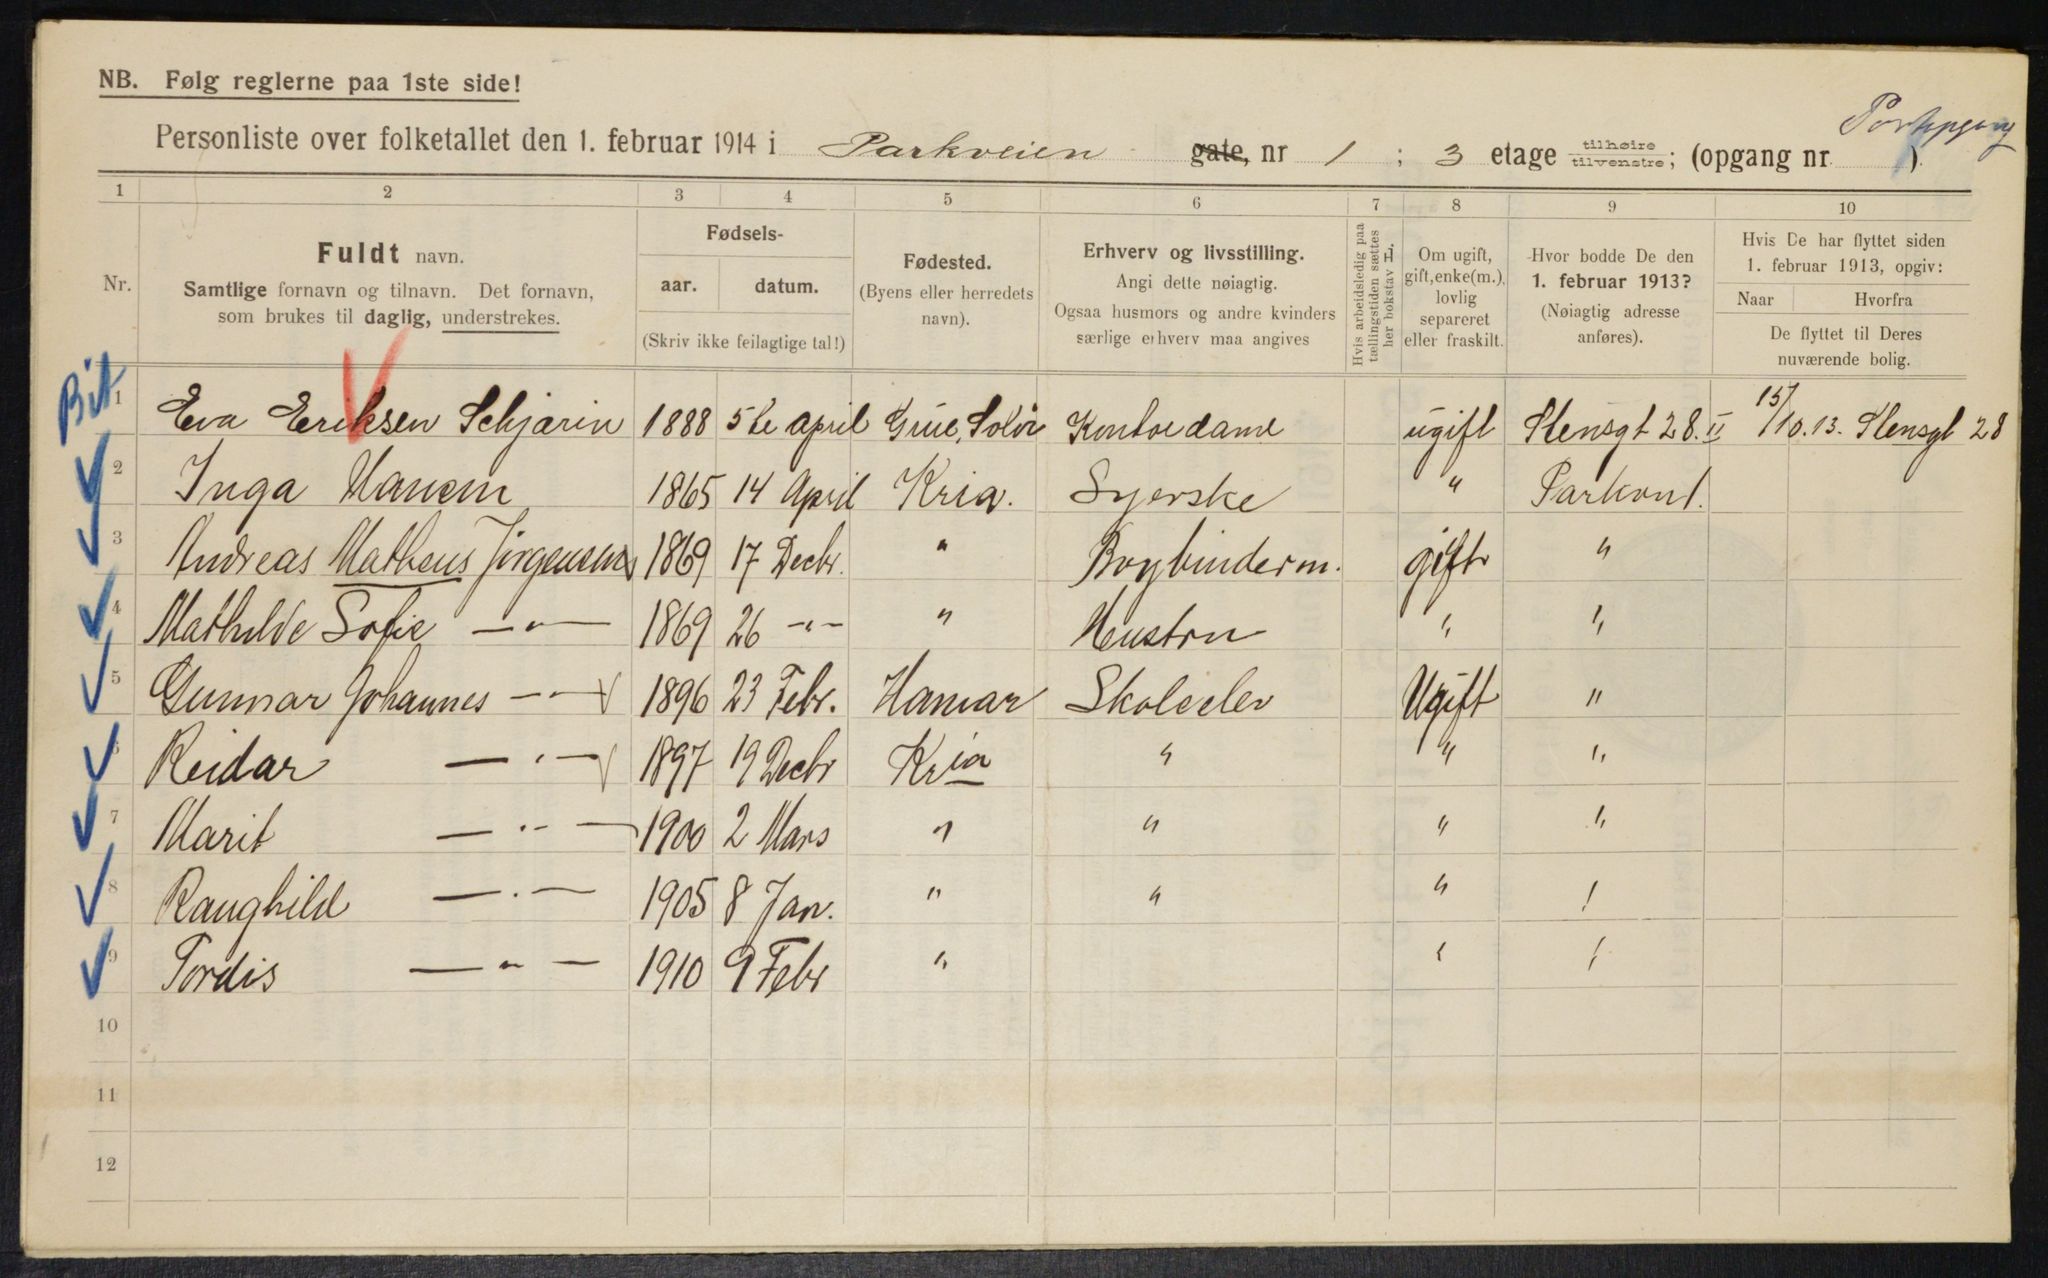 NB. Følg reglerne paa 1ste side!
Personliste over folketallet den 1. februar 1914 i Parkveien gate, nr 1 ; 3 etage tilhøire tilvenstre; (opgang nr ).
1 2 3 4 5 6 7 8 9 10
Nr.
Fuldt navn.
Samtlige fornavn og tilnavn. Det fornavn,
som brukes til daglig, understrekes.
Fødsels-
aar. datum.
(Skriv ikke feilagtige tal!)
Fødested.
(Byens eller herredets
navn).
Erhverv og livsstilling.
Angi dette nøiagtig.
Ogsaa husmors og andre kvinders
særlige erhverv maa angives
Hvis arbeidsledig paa
tællingstiden sættes
her bokstav L.
Om ugift,
gift, enke(m.),
lovlig
separeret
eller fraskilt.
Hvor bodde De den
1. februar 1913?
(Nøiagtig adresse
anføres).
Hvis De har flyttet siden
1. februar 1913, opgiv:
Naar Hvorfra
De flyttet til Deres
nuværende bolig.
1 Eva Eriksen Schjærin 1888 5te april Grue, Solør Kontordame ugift Stensgt 28. II 15/10.13. Stensgt 28
2 Inga Hansen 1865 14 April Kria. Syerske " Parkvn 1.
3 Andreas Matheus Jørgensen 1869 17 Decbr. " Bogbinderm. gift "
4 Mathilde Sofie —"— 1869 26 —"— " Hustru " "
5 Gunnar Johannes —"— 1896 23 Febr. Hamar Skoleelev Ugift "
6 Reidar —"— 1897 19 Decbr Kria " " "
7 Marit —"— 1900 2 Mars " " " "
8 Raughild —"— 1905 8 Jan. " " " "
9 Tordis —"— 1910 9 Febr " " "
10
11
12